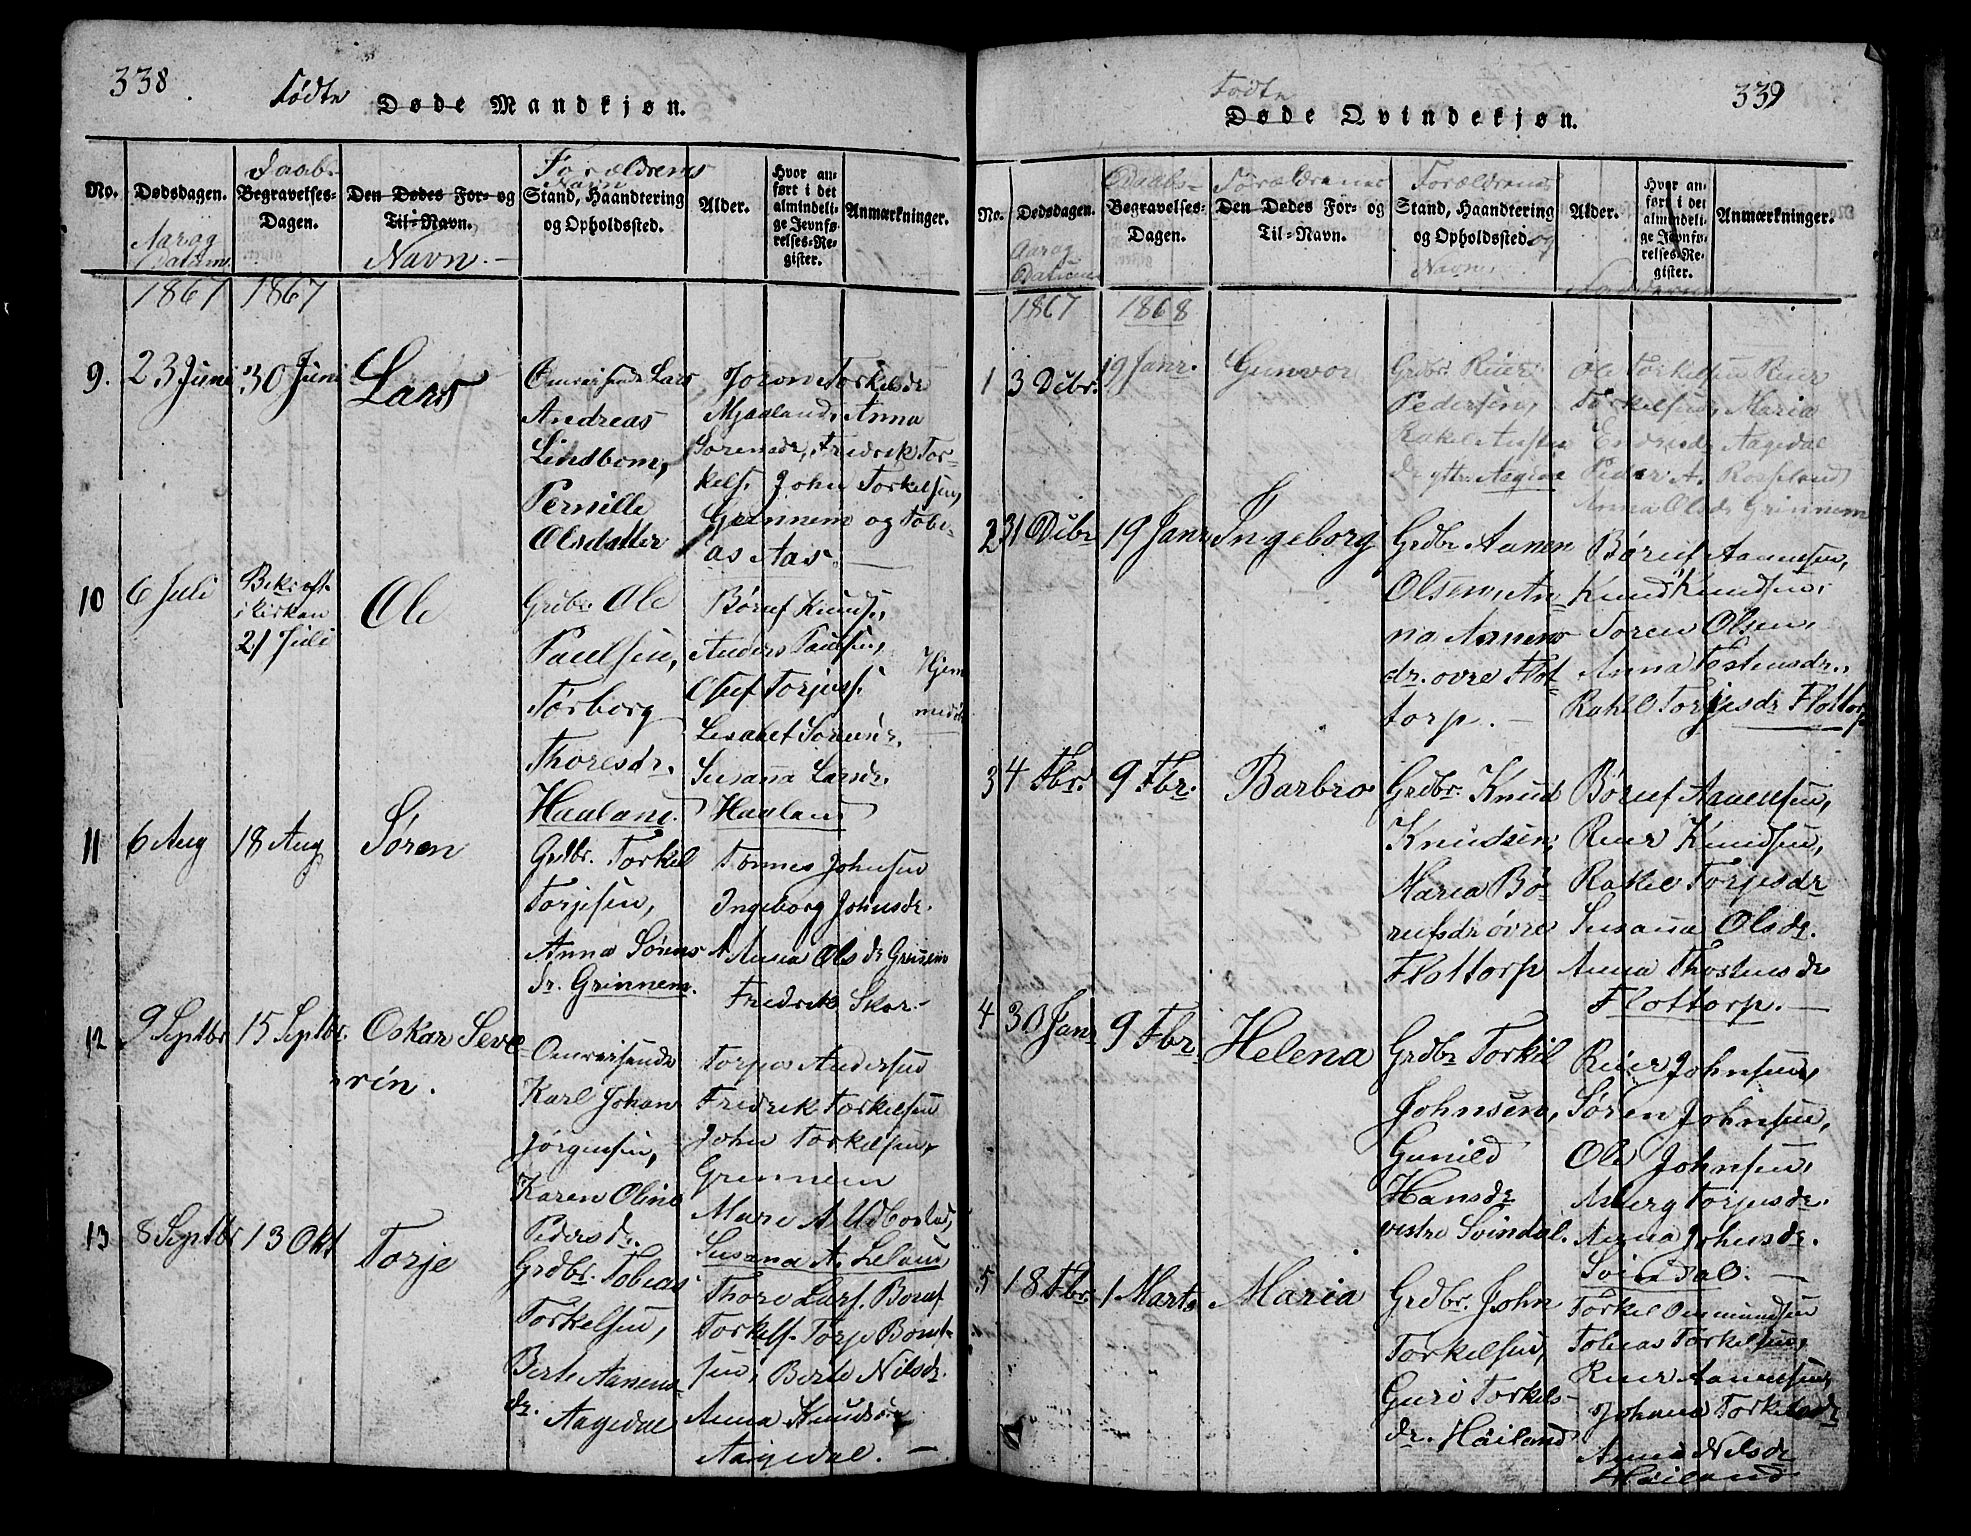 338
Fødte
Døde Mandkjøn.
No.
Dødsdagen.
Aar og
Datum
Daabs-
Begravelses-
Dagen.
Den Dødes For- og
Til-Navn.
Navn.
Forældrens
Navn
Stand, Haandtering
og Opholdssted.
Alder.
Hvor an-
ført i det
almindeli-
ge Jevnfø-
relses-Re-
gister.
Anmærkninger.
1867 1867
9. 23 Juni 30 Juni Lars
Omreisende Lars
Andreas
Lindbom,
Pernille
Olsdatter
Joron Torkelsdr
Mjaaland, Anna
Sorensdr, Fredrik Tor-
kels. John Torkelsen,
Grinnem og Tobi-
as Aas.
10 6 Juli
Bekræft.
i Kirken
21 Juli
Ole
Grdbr. Ole
Paulsen,
Torborg
Thoresdr.
Haaland.
Børuf Knuds.,
Anders Paulsen,
Oluf Torjuss.
Lisabet Sorensdr.
Susanna Larsdr.
Haaland
Hjem
medøbt
11 6 Aug 18 Aug Søren
Grdbr. Torkel
Torjesen,
Anna Sørens
dr. Grinnem.
Tønnes Johnsen
Ingeborg Johnsdr.
Anna Olsdr Grinnem
Fredrik Skor-
12 9 Septbr 15 Septbr. Oskar Seve-
rin.
Omreisende
Karl Johan
Jørgensen,
Karen Oline
Pedersdr.
Torjus Andersen
Fredrik Torkelsen
John Torkelsen,
Grinnem
Mare A. Udbostad,
Susana A. Leland
13 8 Septbr 13 Okt Torje
Grdbr. Tobias
Torkelsen,
Berte Aanens-
dr. Aagedal
Thore Lars. Boruf
Torkels. Torje Boruf-
sen, Berte Nilsdr.
Anna Knudsdr
Aagedal.
339
Fødte
Døde Qvindekjøn.
No.
Dødsdagen.
Aar og
Datum
Daabs-
Begravelses-
Dagen.
Forældrenes
Den Dødes For- og
Til-Navn.
Forældrenes
Stand, Haandtering
og Opholdssted. og
Navn.
Alder.
Faddernes
Hvor an-
ført i det
almindeli-
ge Jevnfø-
relses-Re-
gister.
Anmærkninger.
1867 1868
1 3 Dcbr. 19 Janr. Gunvor
Grdbr. Reier
Pedersen,
Rakel Austen
dr ytre Aagedal
Ole Torkelsen Reier
Torkelsen, Maria
Endresdr Aagedal
Peder A. Rosseland
Anna Olsdr Grinnem
2 31 Dcbr 19 Janr Ingeborg
Grdbr Aanen
Olsen, An-
na Aanens
dr. øvre Flot-
torp.
Børuf Aanensen,
Knud Knudsen,
Soren Olsen,
Anna Tostensdr.,
Rakel Torjesdr Flottorp
3 4 Fbr. 9 Fbr. Barbro
Grdbr. Knud
Knudsen,
Maria Bø-
rufsdr øvre
Flottorp
Børuf Aanensen,
Reier Knudsen,
Rakel Torjesdr
Susana Olsdr.
Anna Thostensdr
Flottorp.
4 30 Janr 9 Fbr. Helena
Grdbr Torkil
Johnsen,
Gunild
Hansdr
vestre Svindal.
Reier Johnsen,
Søren Johnsen,
Ole Johnsen,
Asberg Torjesdr.
Anna Johnsdr.
Svindal.
5 18 Fbr. 1 Marts Maria
Grdbr. John
Torkelsen,
Guri Torkels-
dr. Høiland
Torkel Osmundsen
Tobias Torkelsen,
Reier Aanensen,
Johana Torkelsdr
Anna Nilsdr
Høiland